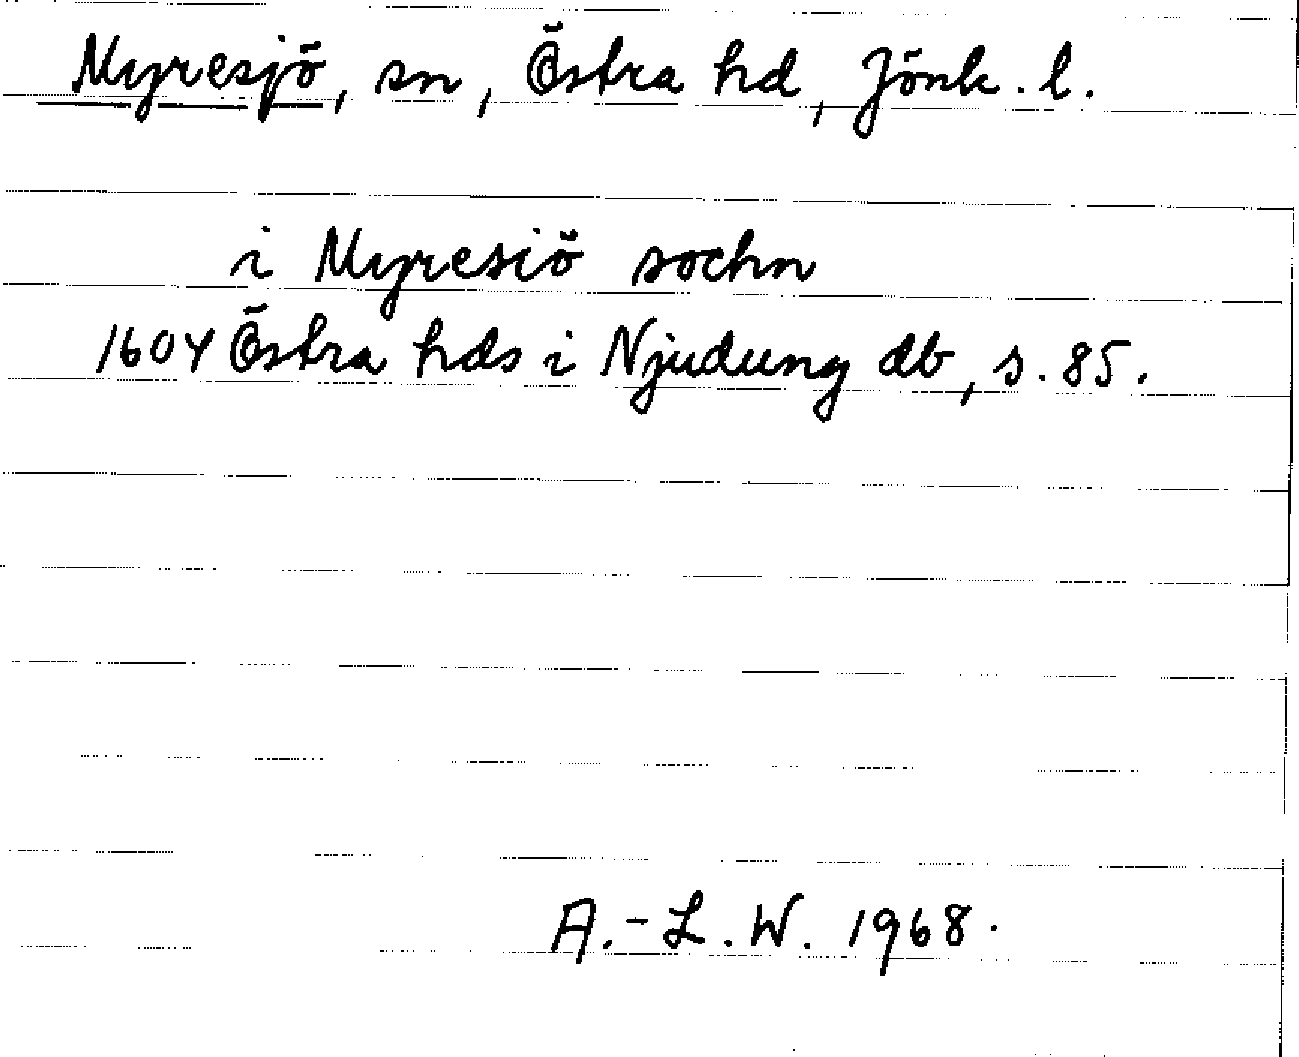 Myresjö, sn, Östra hd, Jönk. l.
i Myresiö sochn
1604 Östra hds i Njudung db, s. 85.
A.-L. W. 1968.